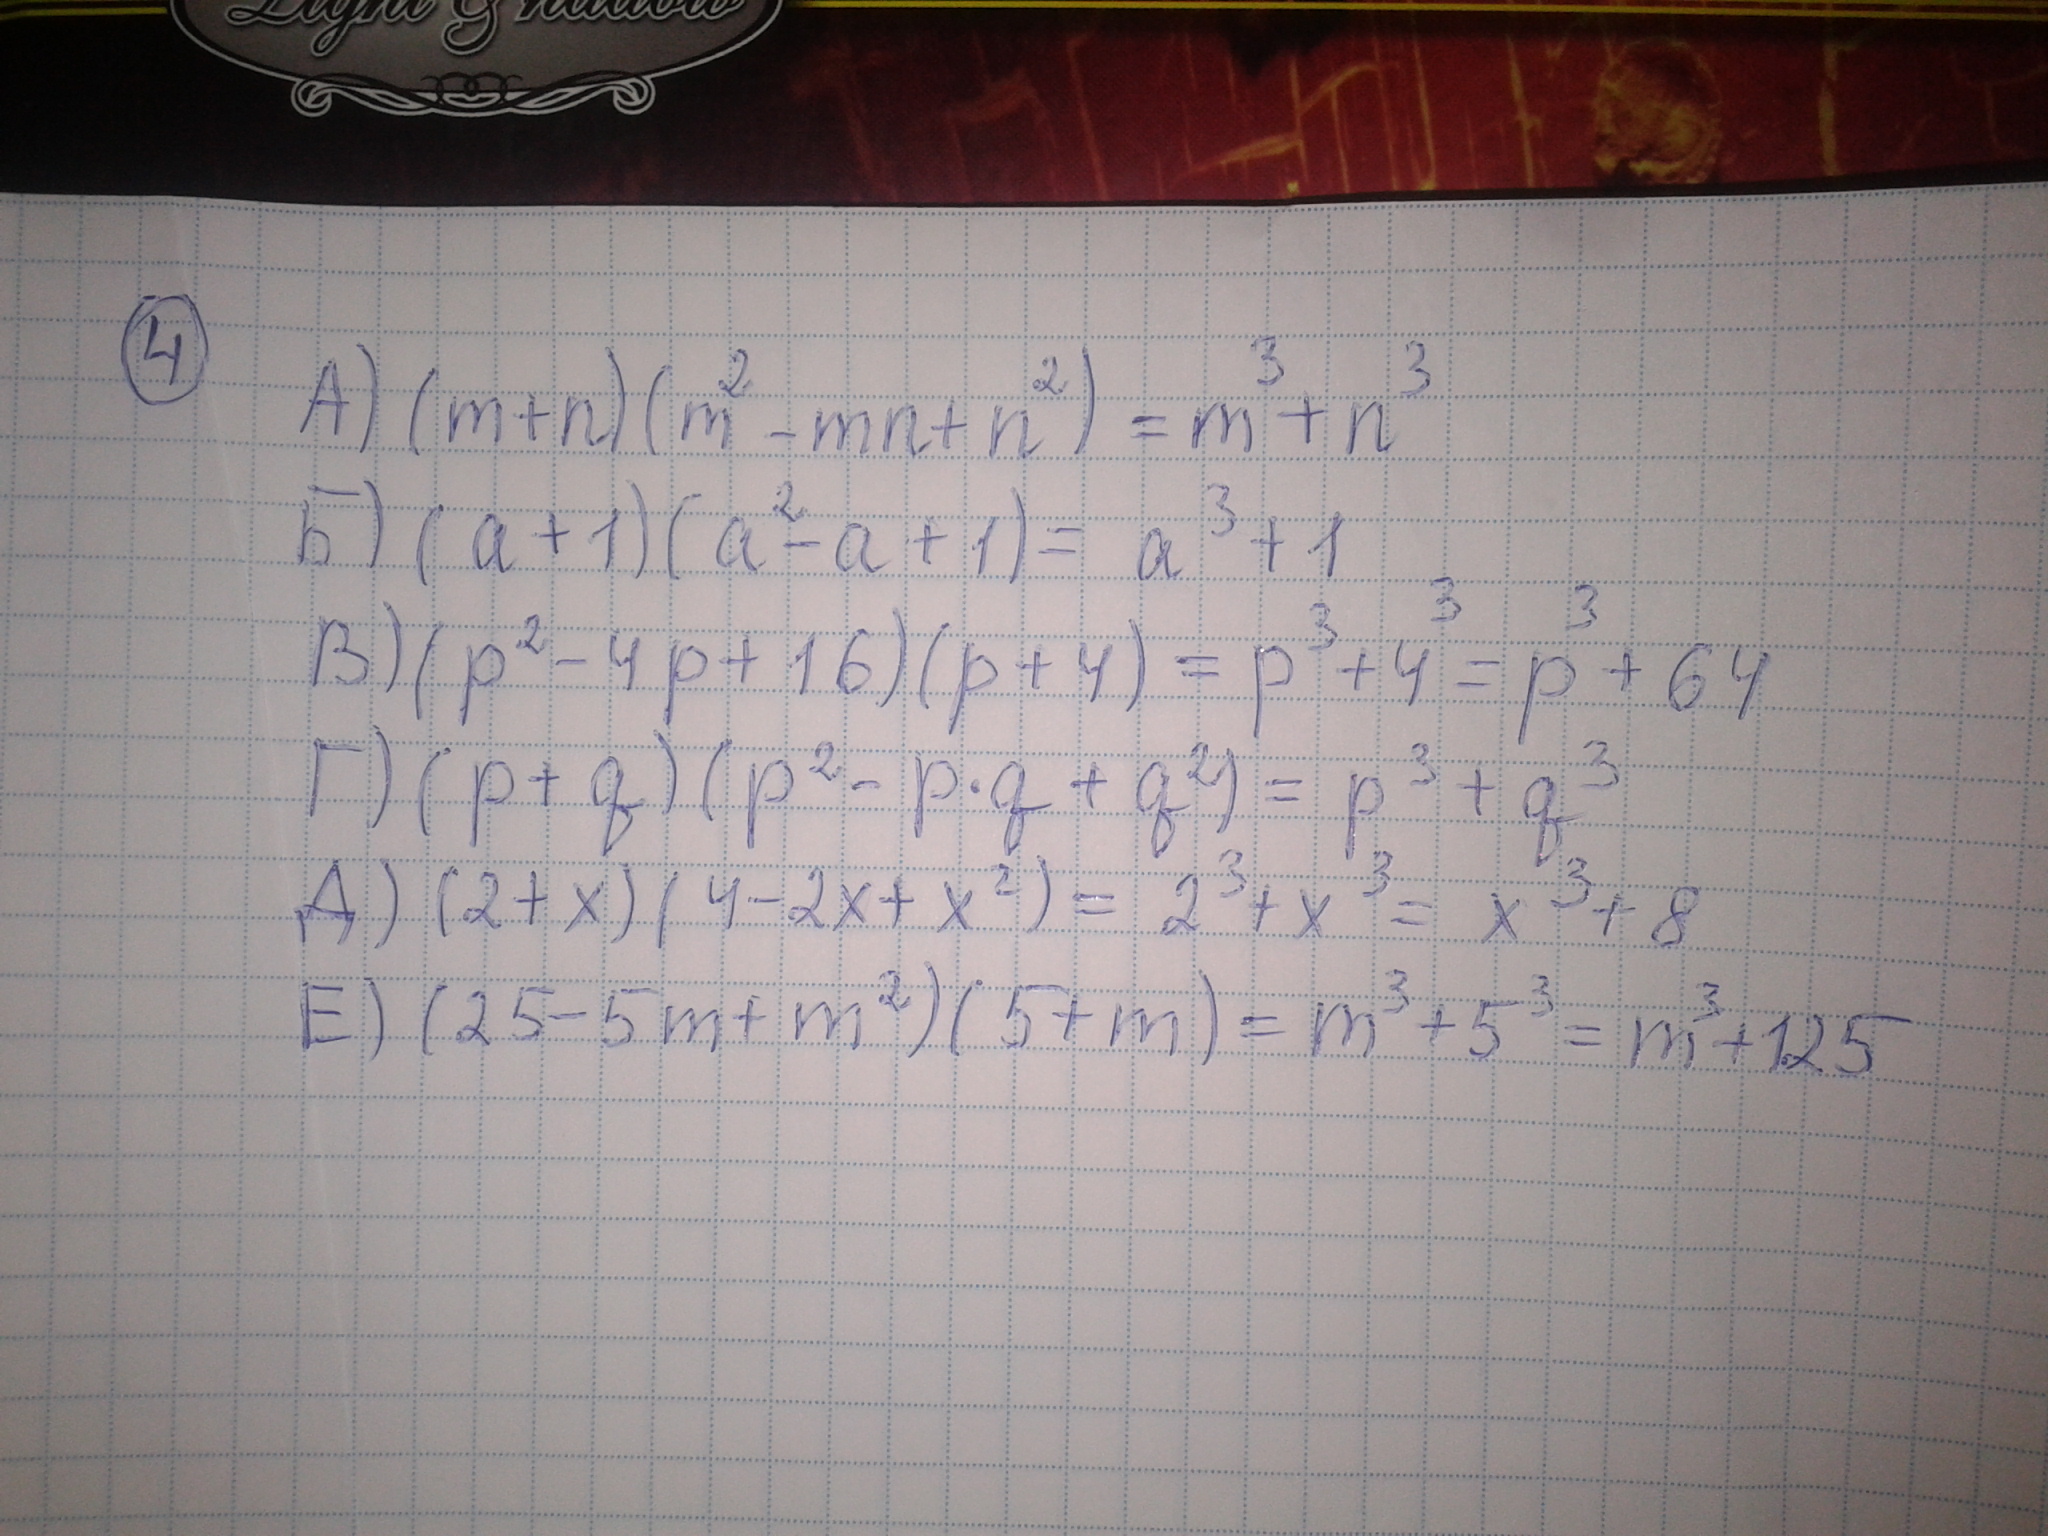 Light & Shadow
4
А) (m+n)(m²-mn+n²) = m³+n³
Б) (a+1)(a²-a+1) = a³+1
В) (p²-4p+16)(p+4) = p³+4³ = p³+64
Г) (p+q)(p²-p·q+q²) = p³+q³
Д) (2+x)(4-2x+x²) = 2³+x³ = x³+8
Е) (25-5m+m²)(5+m) = m³+5³ = m³+125